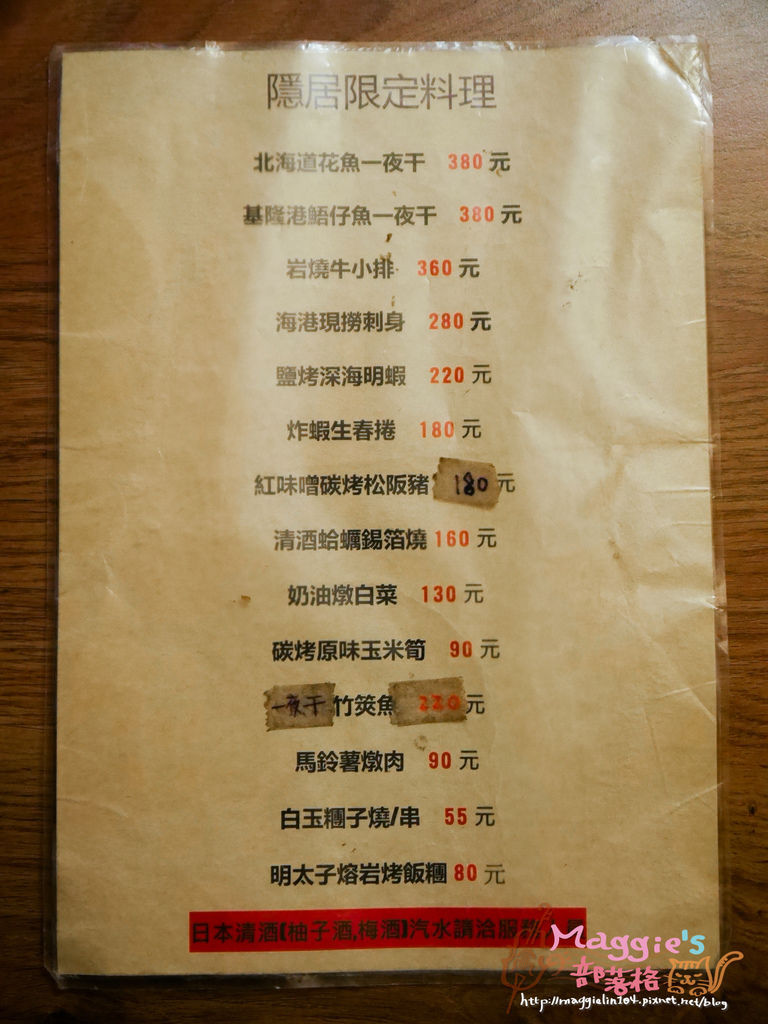 隱居限定料理
北海道花魚一夜干 380 元
基隆港鯃仔魚一夜干 380 元
岩燒牛小排 360 元
海港現撈刺身 280 元
鹽烤深海明蝦 220 元
炸蝦生春捲 180 元
紅味噌碳烤松阪豬 180 元
清酒蛤蠣錫箔燒 160 元
奶油燉白菜 130 元
碳烤原味玉米筍 90 元
一夜干 竹筴魚 220 元
馬鈴薯燉肉 90 元
白玉糰子燒/串 55 元
明太子熔岩烤飯糰 80 元
日本清酒(柚子酒,梅酒)汽水請洽服務人員
Maggie's
部落格
http://maggialin104.pixnet.net/blog